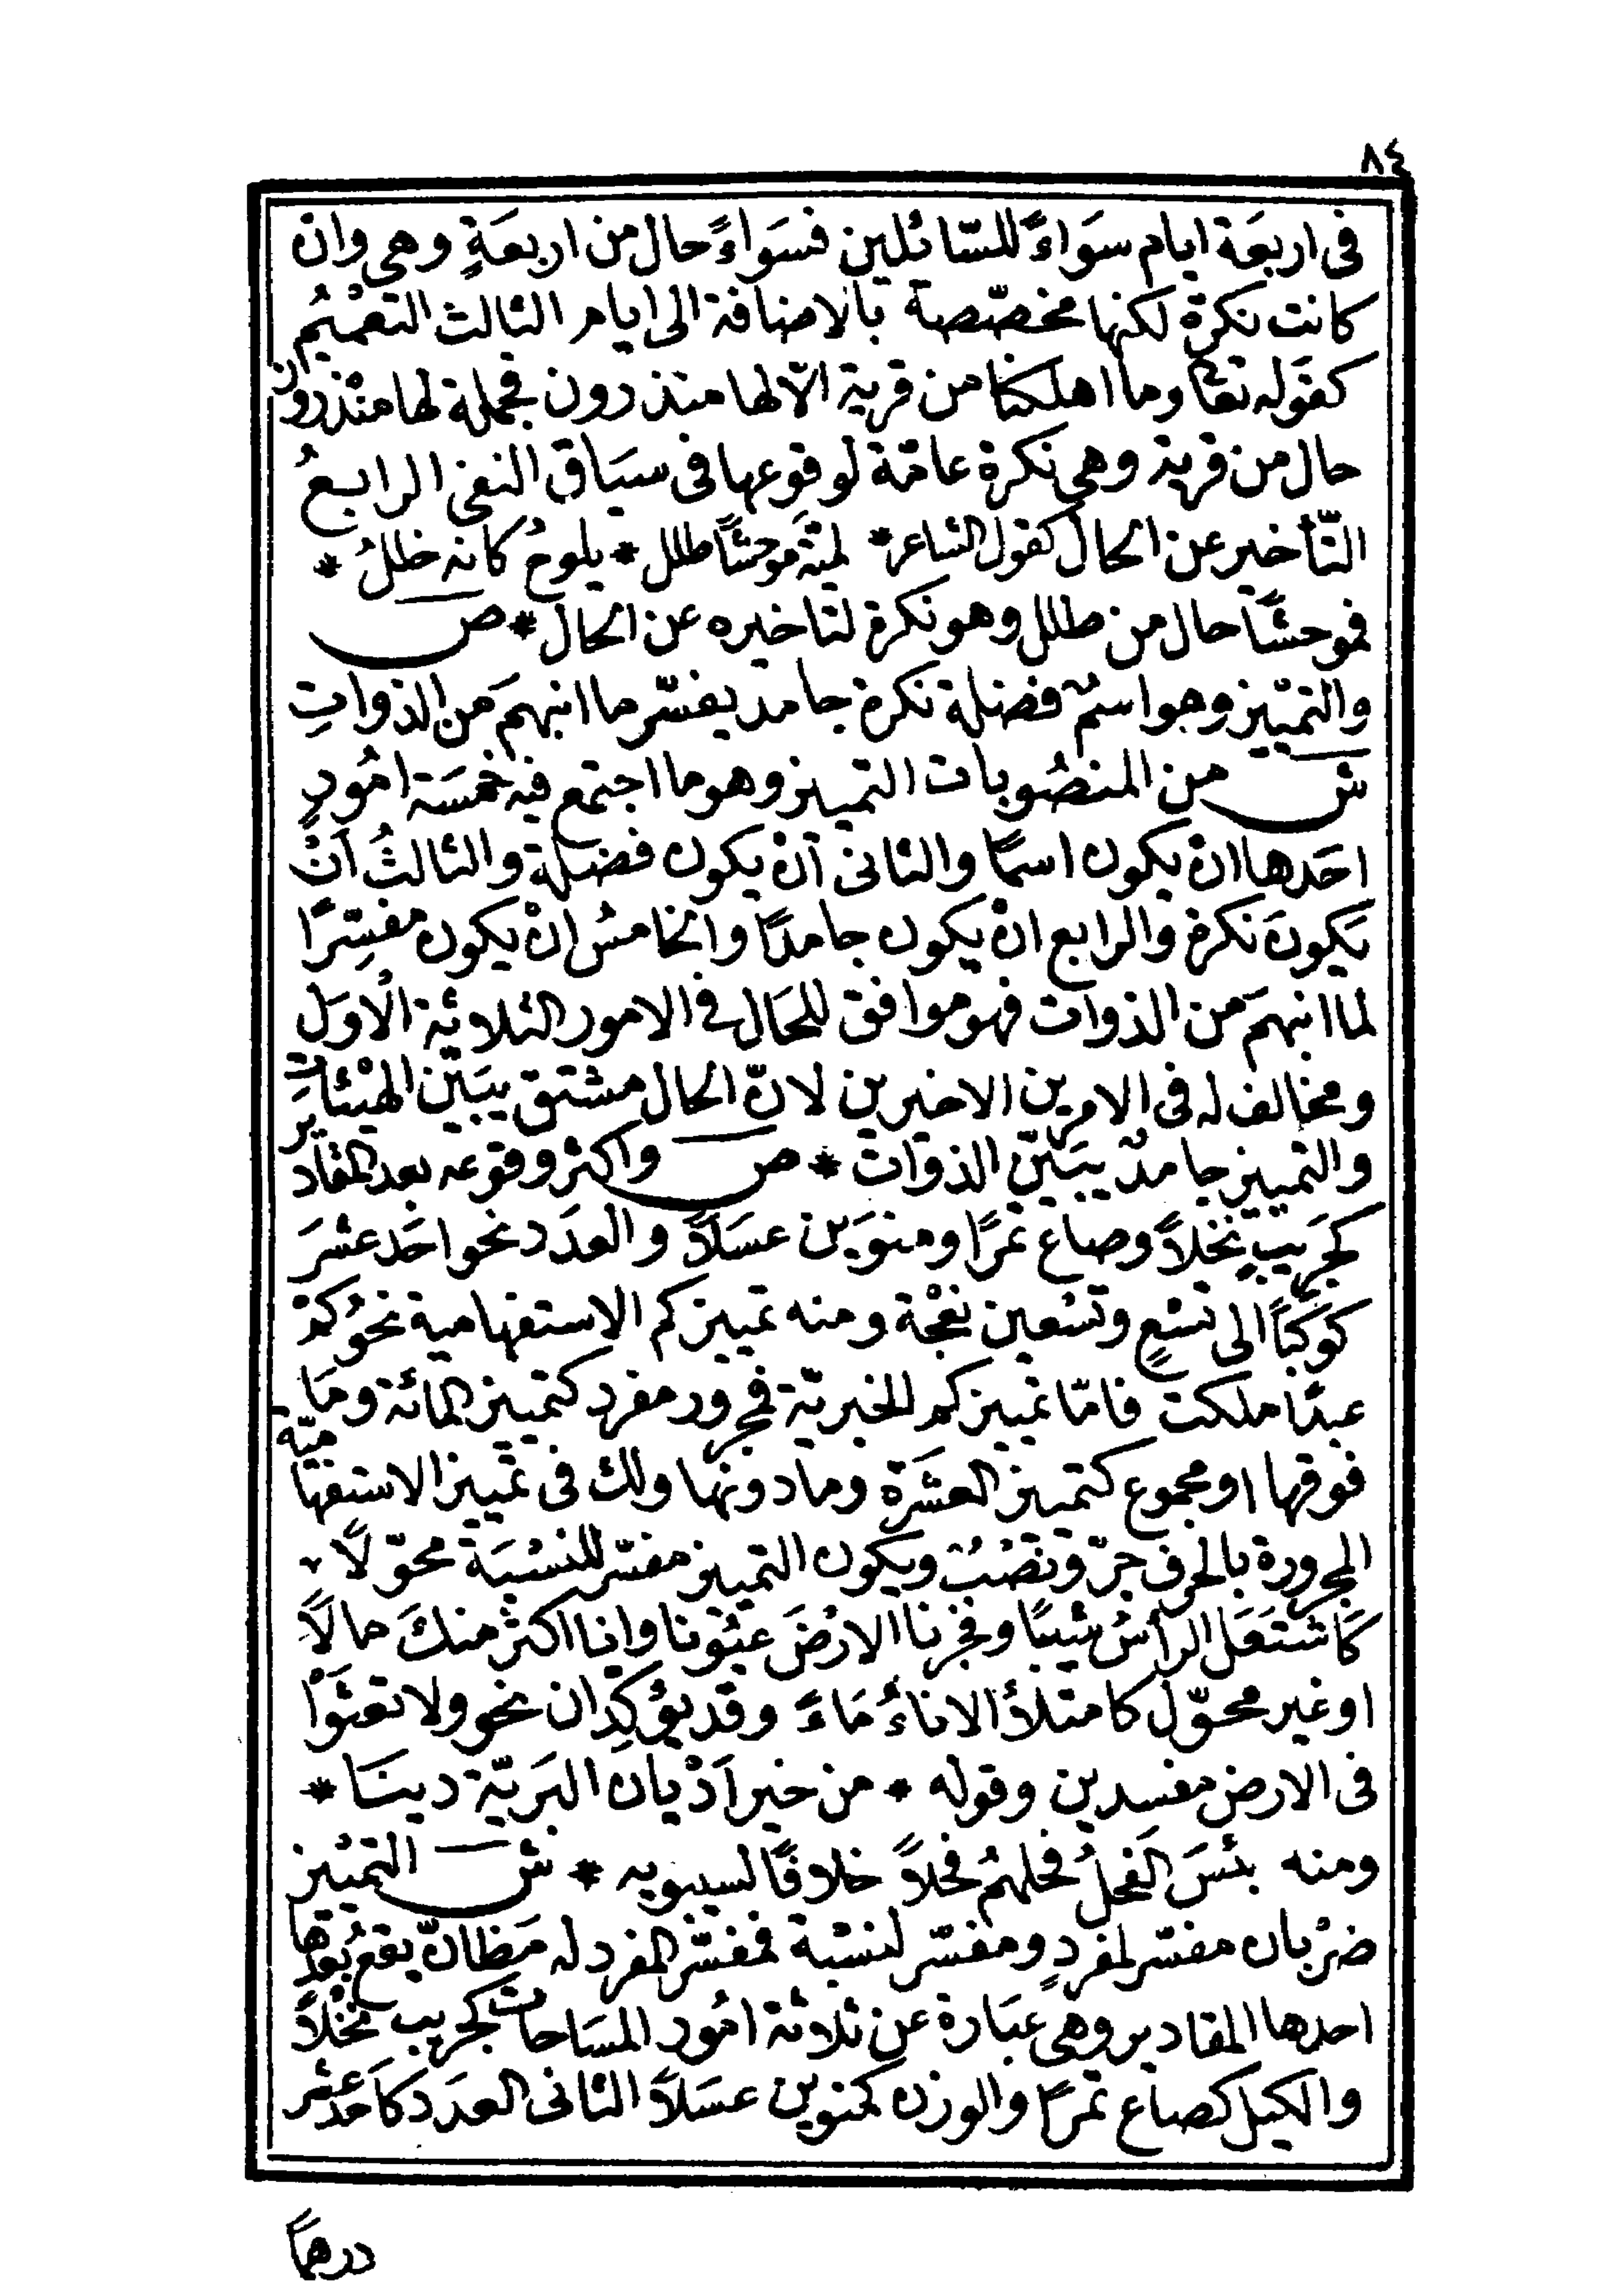 ٨٤
فى اربعَة ايام سوَاءً للسّائلين فسَوَاءً حال من اربعَةٍ وهى وان
كانت نكرة لكنها مخصّصة بالاضافة الى ايام الثالث التعْميمُ
كقوله تعا وما اهلكنا من قرية الّا لها منذرون فجملة لها منْذرون
حال من قرية وهى نكرة عامّة لوقوعها فى سيَاق النفى الرابعُ
التّأخير عن الحال كقول الشاعر * لميّةَ موحشًا طلل * يلوحُ كانه خللُ *
فموحشًا حال من طلل وهو نكرة لتاخيره عن الحال * ص
والتمييز وهو اسمٌ فضلة نكرة جامد يفسّر ما انبهمَ من الذواتِ
ش من المنصُوبات التمييز وهو ما اجتمع فيه خمسَة امُورٍ
احَدها انْ يكون اسمًا والثانى انْ يكون فضلة والثالثُ انْ
يَكونَ نكرة والرابع انْ يكون جامدًا والخامسُ انْ يكون مفسِّرًا
لما انبهمَ من الذوات فهو موافق للحَال فى الامور الثلاثة الْاوَل
ومخالف له فى الامرين الاخيرين لانّ الحال مشتق يبَيّن الهيْئات
والتمييز جامدٌ يبَيّن الذوَات * ص واكثر وقوعه بعد المقادير
كجَريبٍ نخلاً وصاع تمرًا ومنوَين عسَلاً والعدَد نحو احَد عشرَ
كوكبًا الى تسْعٍ وتسْعين نعْجة ومنه تمييز كم الاستفهامية نحوُ كمْ
عبدًا ملكت فامّا تمييز كم الخبريّة فمجرور مفرد كتمييز المائة ومَا
فوقها او مجموع كتمييز العشَرَة وما دونها ولك فى تمييز الاستفهاميّه
المجرورة بالحرف جرّ ونصْبٌ ويكون التمييز مفسّر للنسْبَة محوّلاً
كَاشتَعَل الرأسُ شيبًا وفجرنا الارْضَ عيُونا وانا اكثر منكَ مالاً
او غير محوّل كامتلأ الاناءُ مَاءً وقد يؤكِدان نحو ولا تعثَوْا
فى الارض مفسدين وقوله * من خير اَدْيان البَريّة دينَا *
ومنه بئسَ الفحلُ فحلهُم فحلاً خلافًا لسيبويه * ش التمييز
ضرْبان مفسّر لمفردٍ ومفسّر لنسْبة فمفسّر المفرد له مَظانّ يقعُ بعْدها
احدها المقادير وهى عبَارة عن ثلاثة امُور المسَاحات كجريب نخْلاً
والكيل كصاع تمرًا والوزن كمنوين عسَلاً الثانى العدَد كاَحد عشر
درهمًا